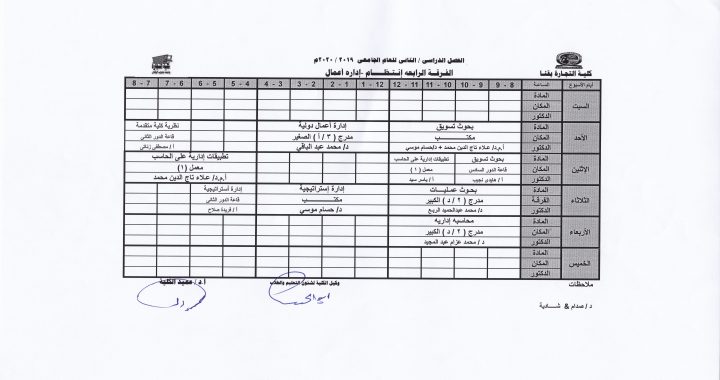 الفصل الدراسى / الثانى للعام الجامعى ٢٠١٩ / ٢٠٢٠م
كلية التجارة بقنا
الفرقة الرابعه إنتظــــام -إداره أعمال
أيام الأسبوع الساعة 8 - 9 9 - 10 10 - 11 11 - 12 12 - 1 1 - 2 2 - 3 3 - 4 4 - 5 5 - 6 6 - 7 7 - 8
السبت
المادة
المكان
الدكتور
الأحد
المادة بحوث تسويق إدارة أعمال دولية نظرية كلية متقدمة
المكان مكتـــــب مدرج ( ٣ / أ ) الصغير قاعة الدور الثانى
الدكتور أ.م.د/ علاء تاج الدين محمد + د/حسام موسي د/ محمد عبد الباقي أ/ مصطفى زناتى
الإثنين
المادة بحوث تسويق تطبيقات إدارية على الحاسب تطبيقات إدارية على الحاسب
المكان قاعة الدور السادس معمل (١) معمل (١)
الدكتور أ / هايدى نجيب أ / ياسر سيد أ.م.د/ علاء تاج الدين محمد
الثلاثاء
المادة بحوث عمليات إدارة إستراتيجية إدارة إستراتيجية
الفرقة مدرج ( ٢ / د ) الكبير مكتـــــب قاعة الدور الثانى
الدكتور د/ محمد عبدالحميد الربيع د/ حسام موسي أ / فريدة صلاح
الأربعاء
المادة محاسبه إداريه
المكان مدرج ( ٢ / د ) الكبير
الدكتور د / محمد عزام عبد المجيد
الخميس
المادة
المكان
الدكتور
ملاحظات
وكيل الكلية لشئون التعليم والطلاب
أ.د / عميد الكلية
د / صدام & شـــادية